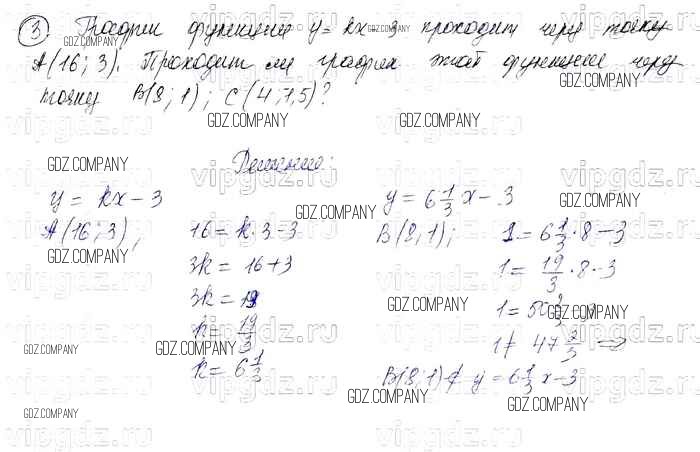 ③ График функции y = kx - 3 проходит через точку
A(16; 3). Проходит ли график этой функции через
точку B(8; 1); C(4; 1,5)?
Решение:
y = kx - 3
A(16; 3);
16 = k·3 - 3
3k = 16 + 3
3k = 19
k = 19/3
k = 6 1/3
y = 6 1/3 x - 3
B(8; 1);
1 = 6 1/3 · 8 - 3
1 = 19/3 · 8 - 3
1 ≠ 47 2/3 ⇒
B(8; 1) ∉ y = 6 1/3 x - 3
GDZ.COMPANY
vipgdz.ru